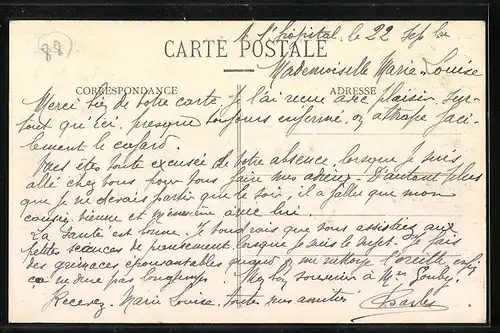 88
A l'hôpital, le 22 Sep
CARTE POSTALE
Mademoiselle Marie-Louise
CORRESPONDANCE
ADRESSE
Merci bien de votre carte. Je l'ai reçue avec plaisir, sur-
tout qu'ici, presque toujours enfermé, on attrape faci-
lement le cafard.
Vous êtes toute excusée de votre absence, lorsque je suis
allé chez vous pour vous faire mes adieux. D'autant plus
que je ne devais partir que le soir, il a fallu que mon
cousin vienne et m'emmène avec lui.
La santé est bonne. Je voudrais que vous assistiez aux
petites séances de pansement lorsque je suis le sujet. Je fais
des grimaces épouvantables quand on me nettoie l'oreille enfin
ça ne dure pas longtemps. bon souvenir à Mme
Recevez, Marie Louise, toutes mes amitiés
Charles